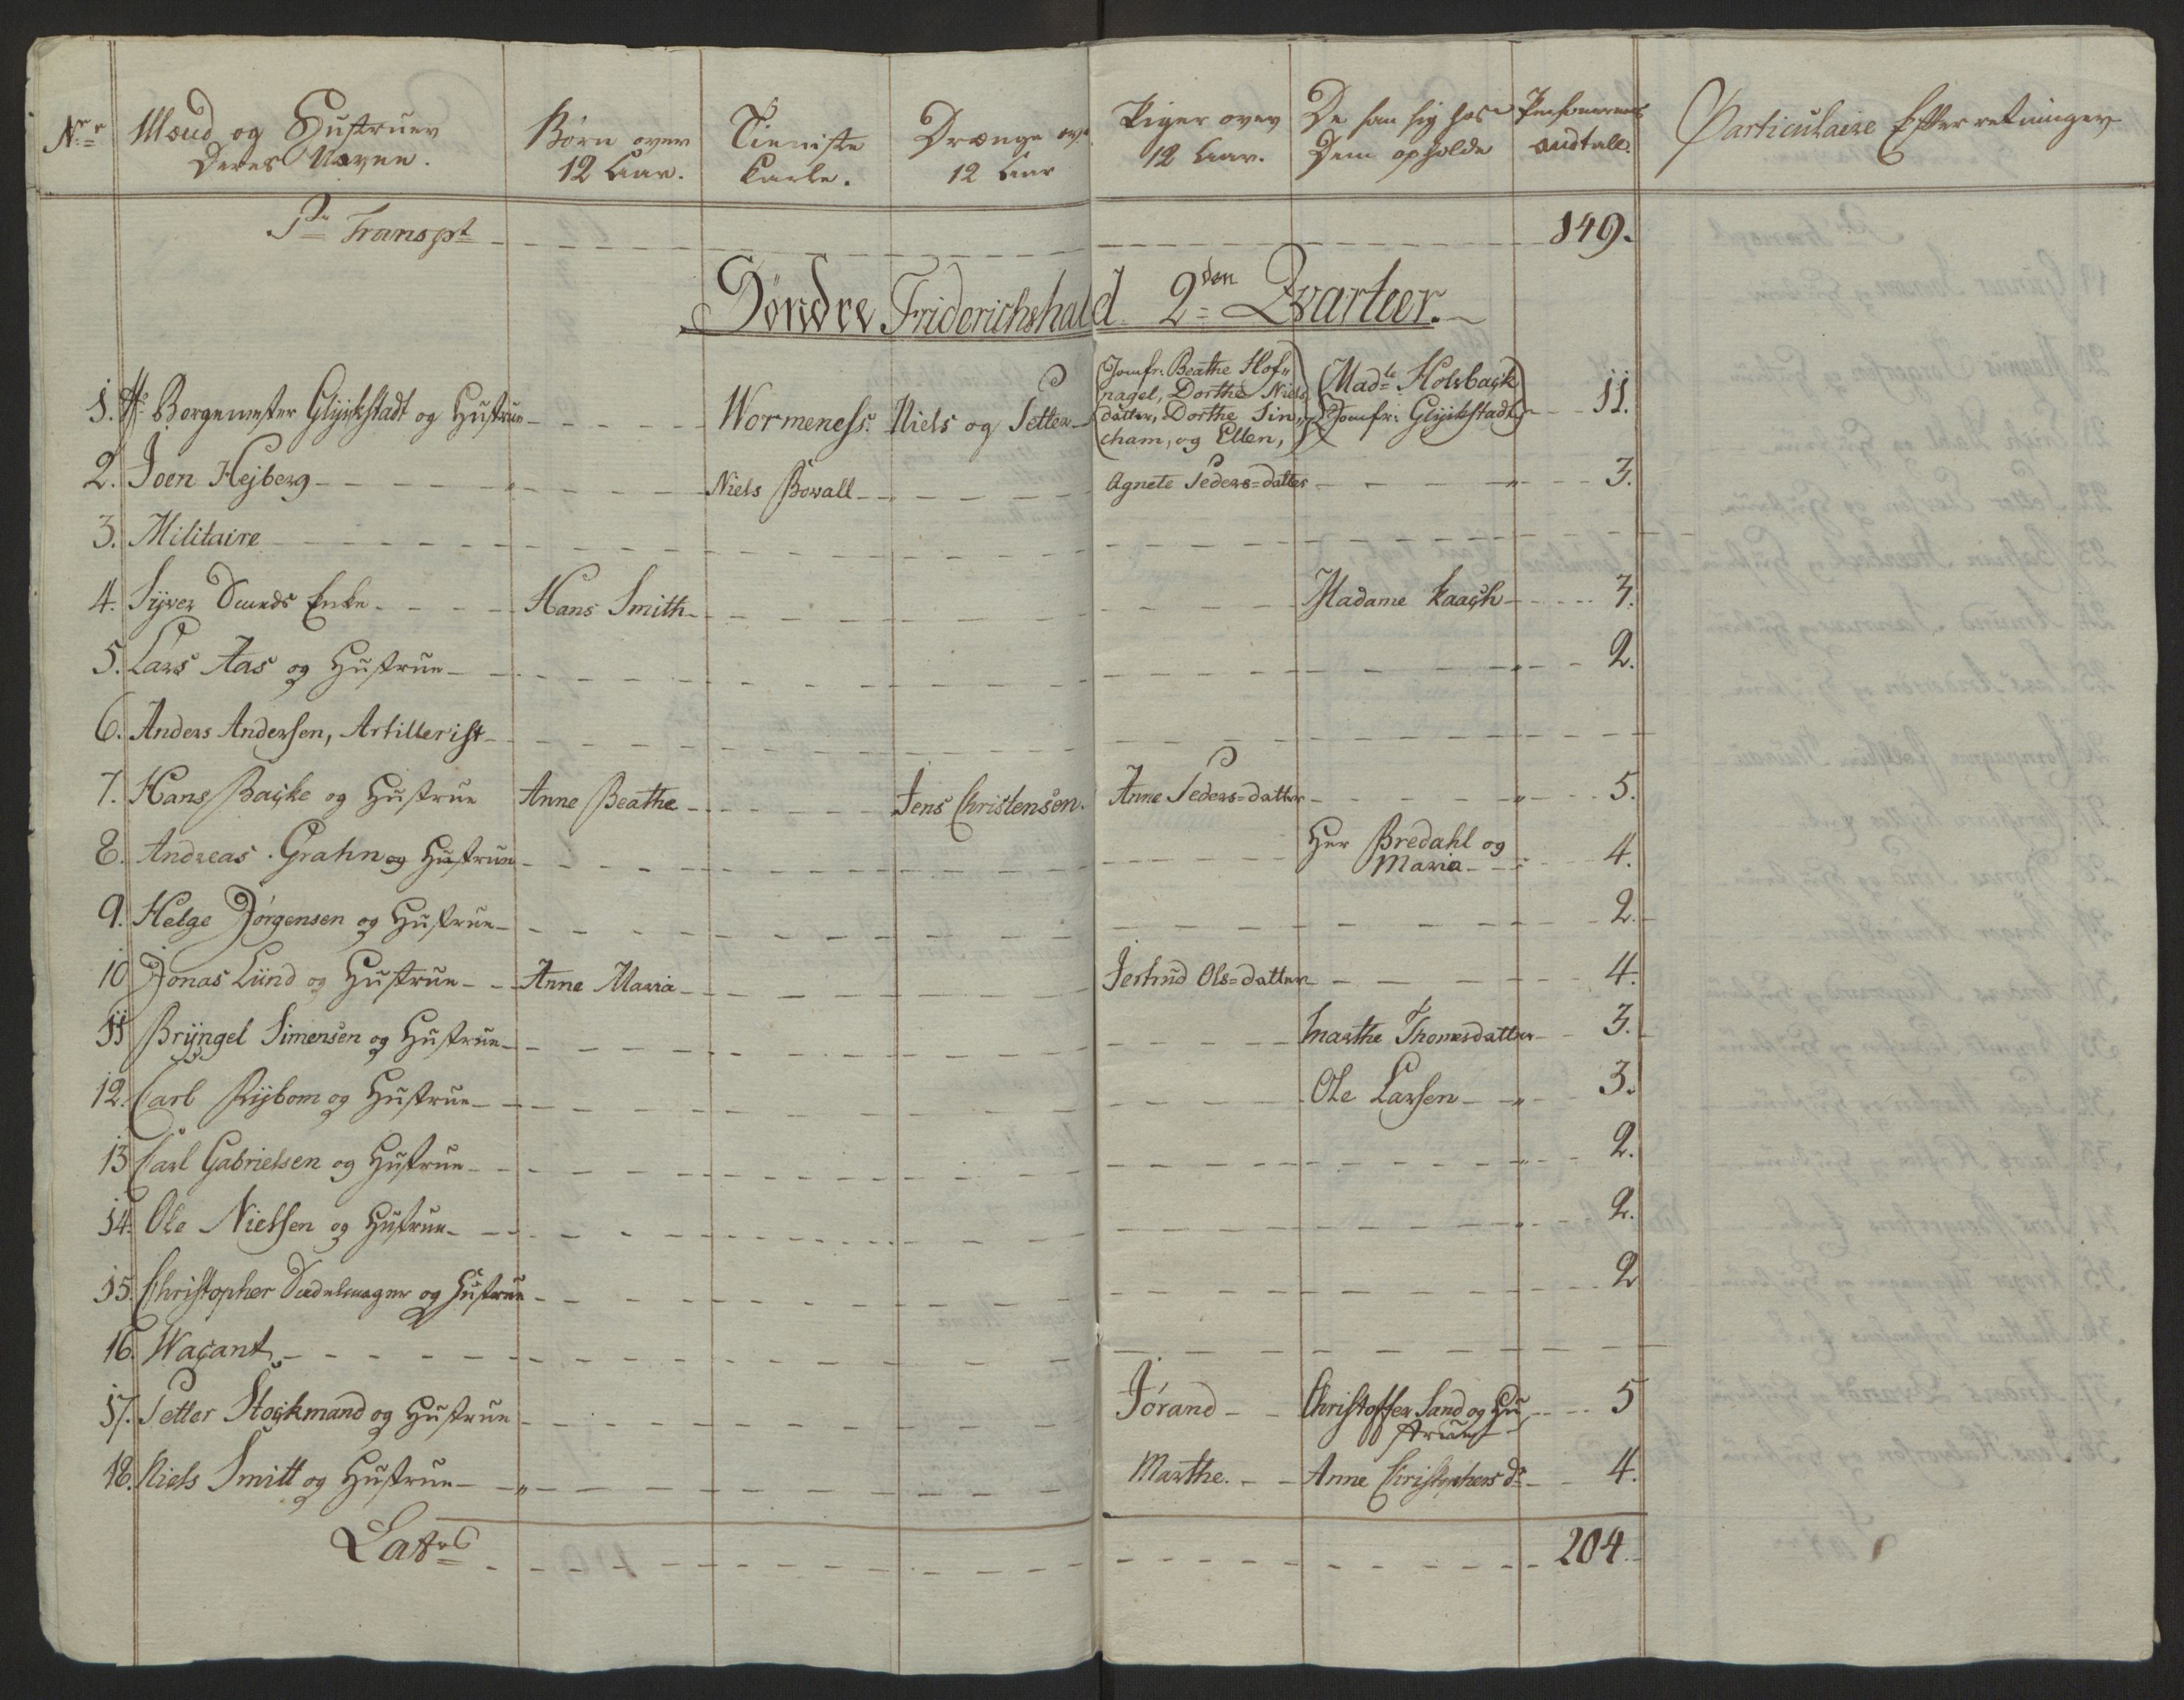 Nr. Mænd og Hustruer Deres Navne. Børn over 12 Aar. Tieniste Karle. Drænge ovr 12 Aar Piger over 12 Aar. De som sig hos Dem opholde Personernes Andtall. Particulaire Efterretninger
Pr Transpt 149.
Söndre Friderichshald 2den Qvarteer.
1. Hr Borgemester Glÿckstadt og Hustrue Wormeness. Niels og Petter Jomfr: Beathe Hof„ Madle Holsback 11.
nagel, Dorthe Niels Jomfr: Glÿckstadt
datter, Dorthe Sin„
cham, og Ellen,
2. Joen Hejberg Niels Bovall Agnete Peders=datter 3.
3. Militaire
4. Syver Smeds Enke Hans Smith Madame Kaagh 3.
5. Lars Aas og Hustrue 2.
6. Anders Andersen, Artillerist
7. Hans Backe og Hustrue Anne Beathe Jens Christensen. Anne Peders=datter 5.
8. Andreas Grahn og Hustrue Her Bredahl og 4.
Maria
9. Helge Jörgensen og Hustrue 2.
10 Jonas Lund og Hustrue Anne Maria Jertrud Ols=datter 4.
11 Brÿngel Simensen og Hustrue Marthe Thomesdatter 3.
12. Carl Rÿbom og Hustrue Ole Larsen 3.
13 Carl Gabrielsen og Hustrue 2.
14. Ole Nielsen og Hustrue 2.
15. Christopher Sadelmager og Hustrue 2
16. Wacant
17. Petter Stockmand og Hustrue Jörand Christoffer Sand og Hu 5
strue
18. Niels Smitt og Hustrue Marthe. Anne Christophers dr 4.
Latus 204.